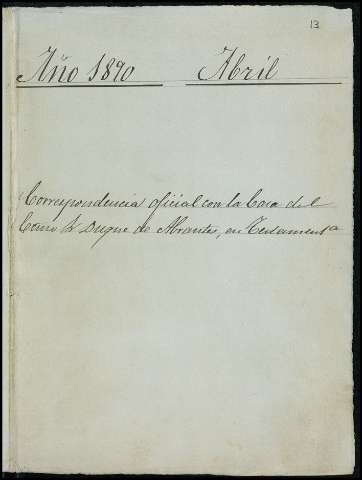 13
Año 1890 Abril
Correspondencia oficial con la Casa del
Excmo Sr Duque de Abrantes, en Testamentª